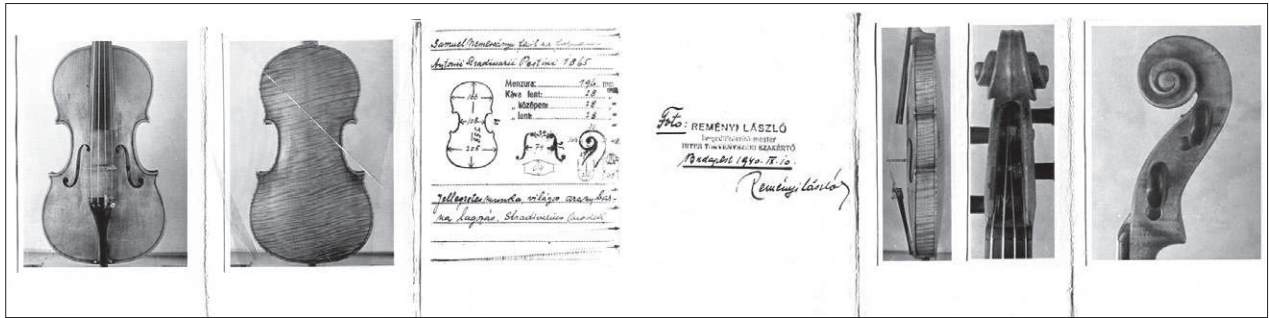 Samuel Nemessányi fecit ad formam
Antonii Stradivarii Pestini 1865
Menzura: 194
Káva fent: 28
„ középen: 28
„ lent: 28
166
108
206
74
Jellegzetes munka, világos arany bar-
na lazpás. Stradivarius modell
Foto: REMÉNYI LÁSZLÓ
hangszerkészítő mester
HITES TÖRVÉNYSZÉKI SZAKÉRTŐ
Budapest 1940. IV. 10.
Reményi László